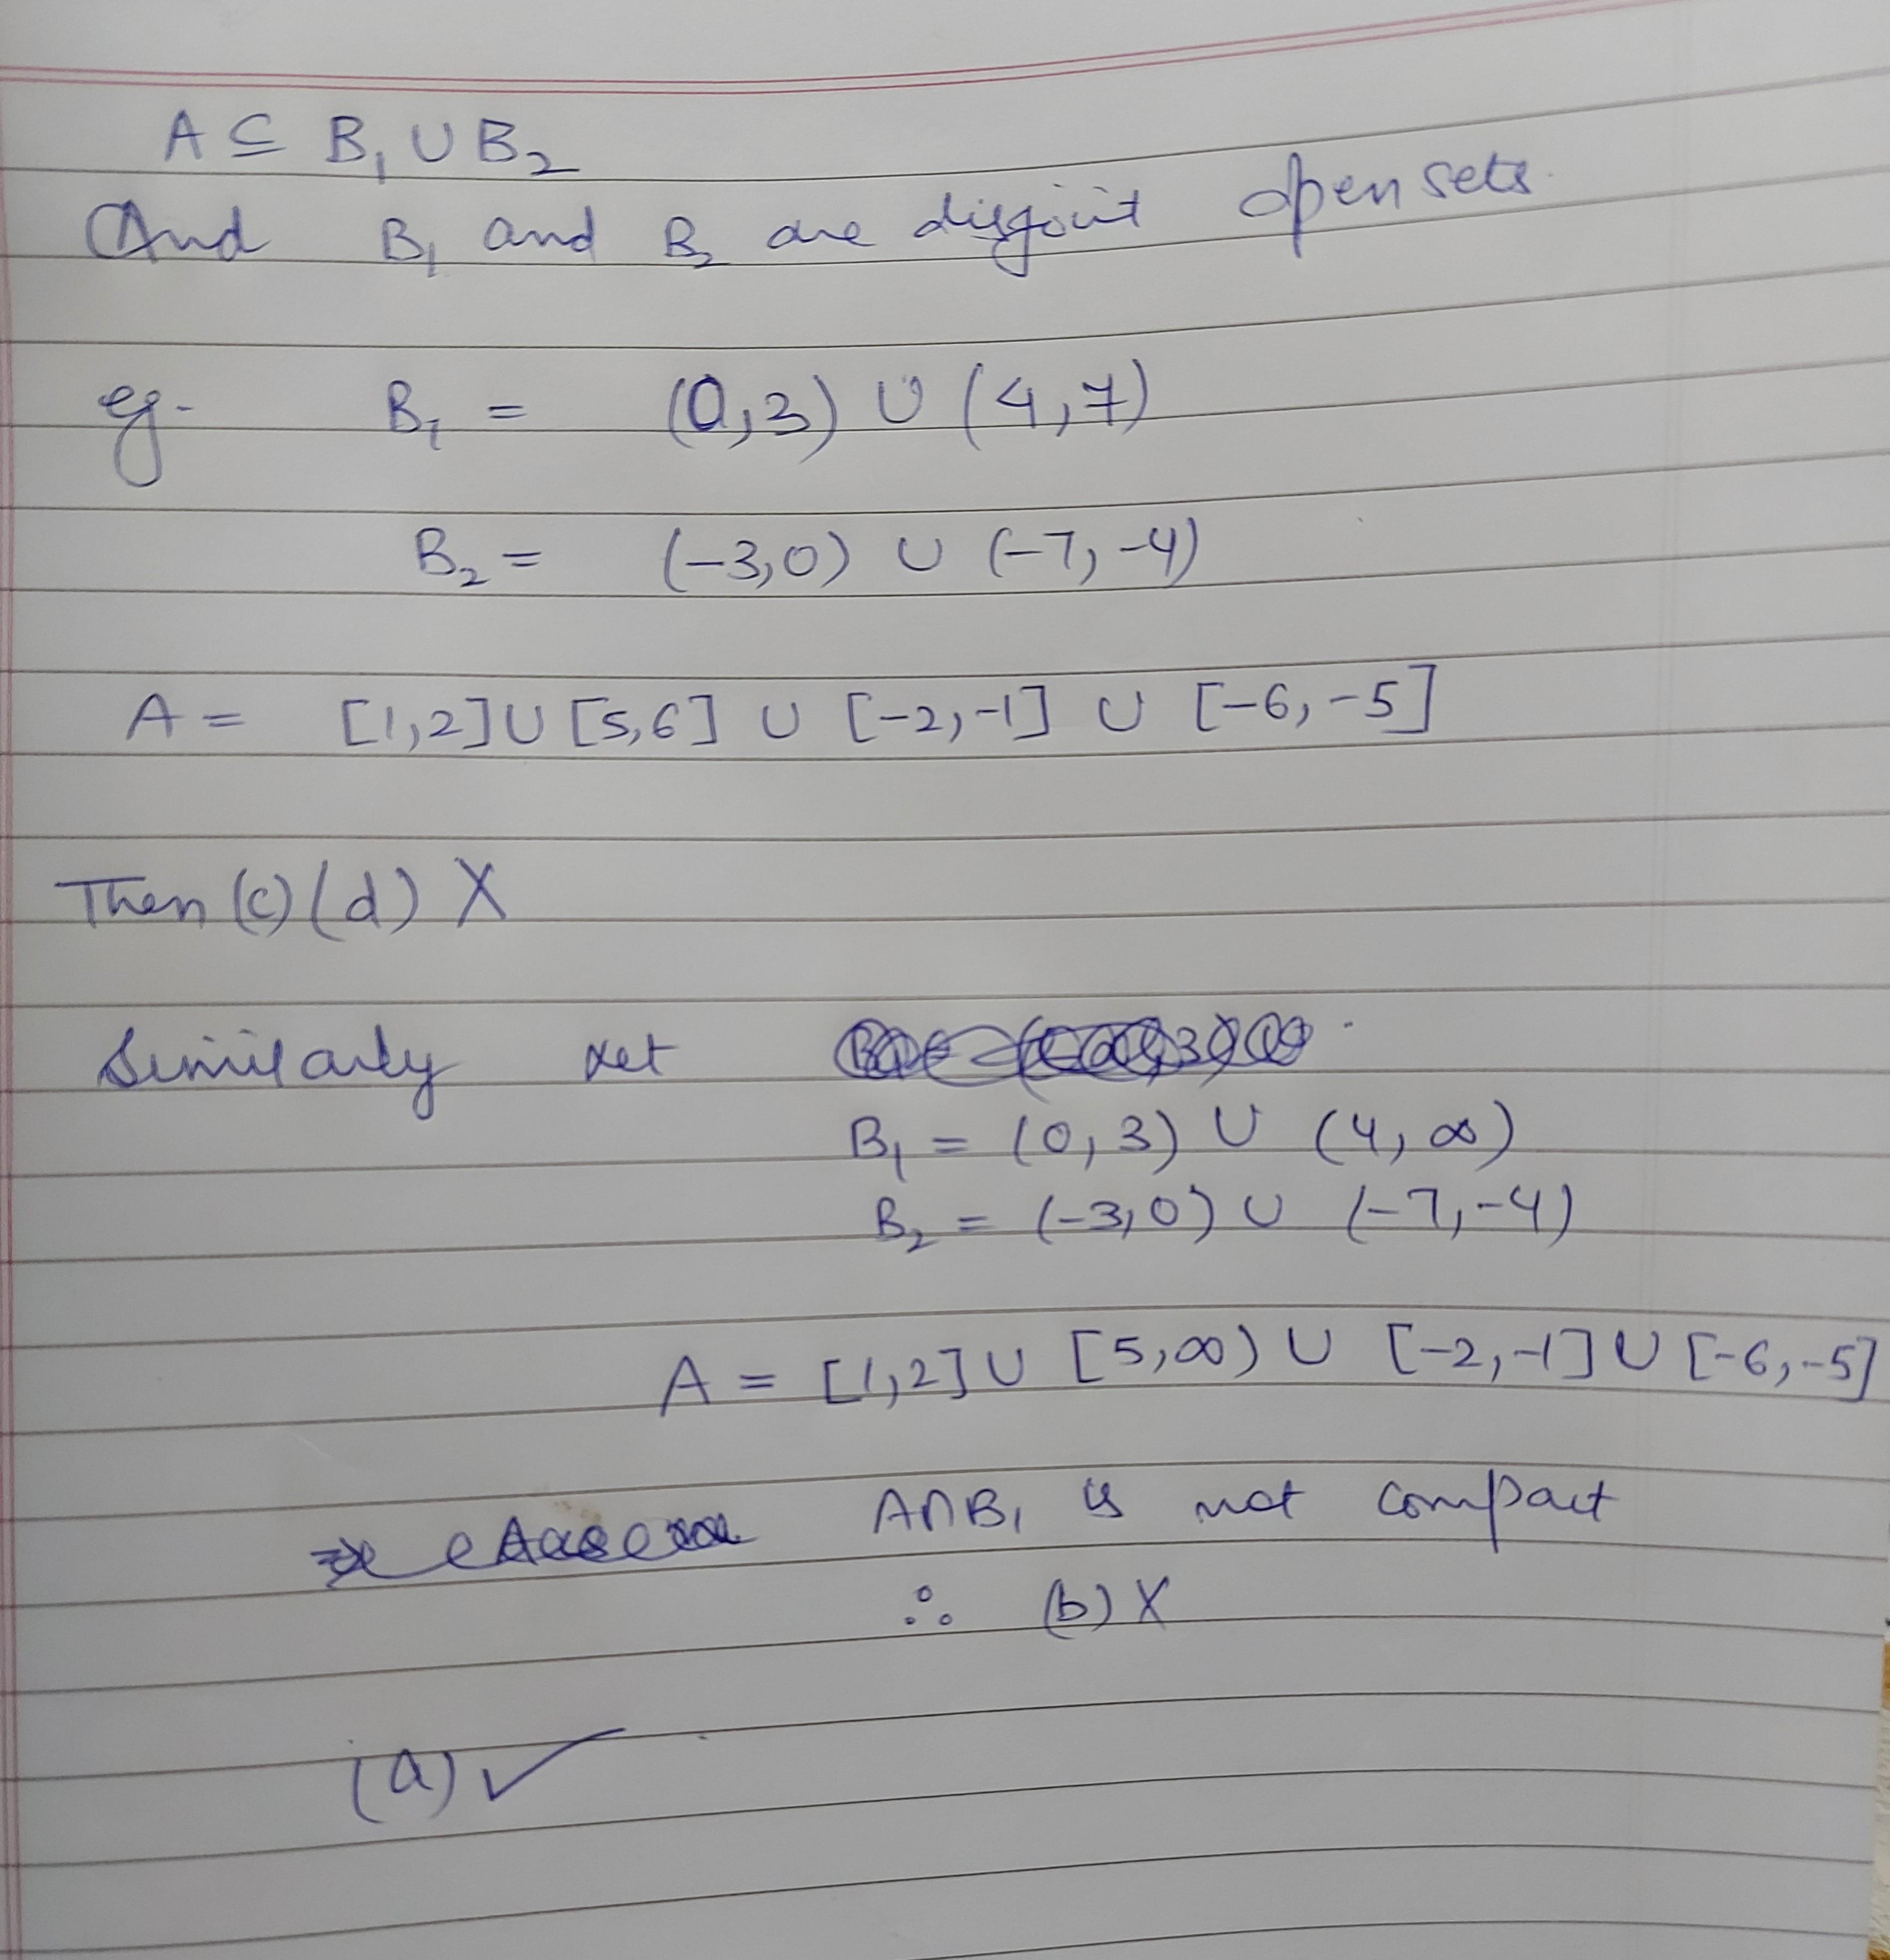 A ⊆ B₁ ∪ B₂
And B₁ and B₂ are disjoint open sets.
eg. B₁ = (0,3) ∪ (4,7)
B₂ = (-3,0) ∪ (-7,-4)
A = [1,2] ∪ [5,6] ∪ [-2,-1] ∪ [-6,-5]
Then (c) (d) X
Similarly let
B₁ = (0,3) ∪ (4,∞)
B₂ = (-3,0) ∪ (-7,-4)
A = [1,2] ∪ [5,∞) ∪ [-2,-1] ∪ [-6,-5]
A∩B₁ is not compact
∴ (b) X
(a) ✓